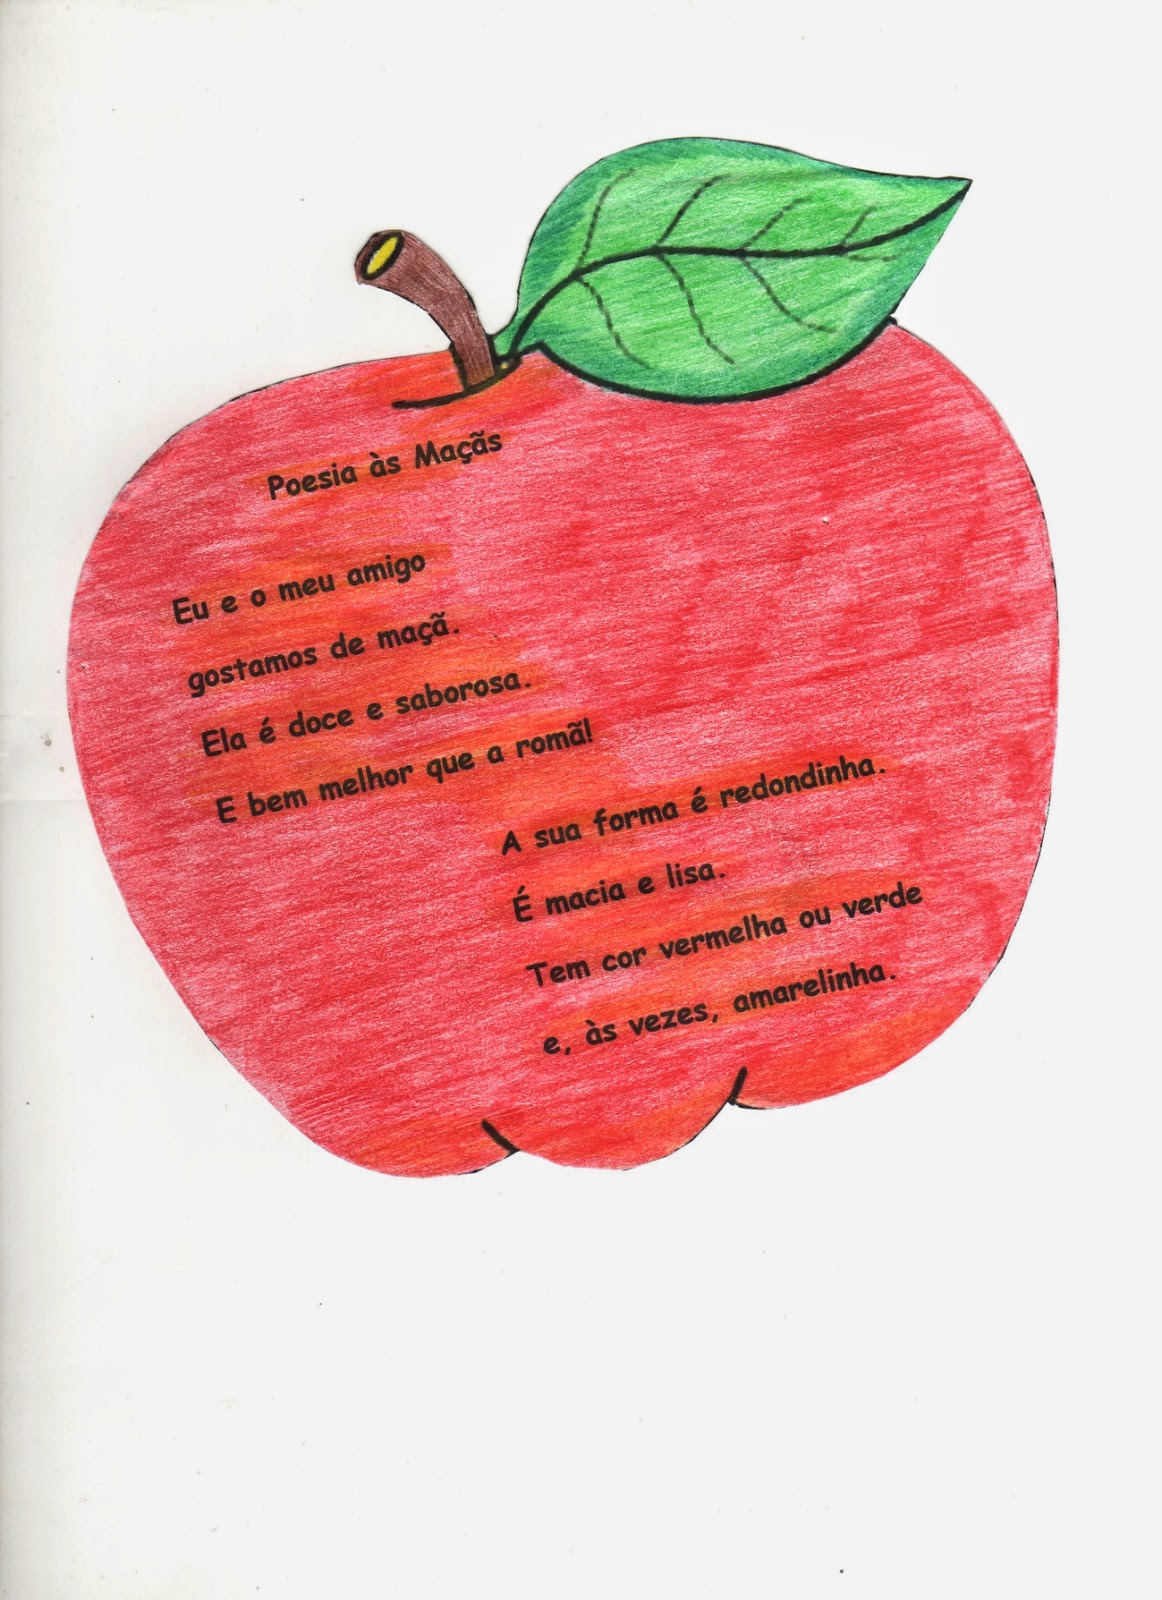 Poesia às Maçãs
Eu e o meu amigo
gostamos de maçã.
Ela é doce e saborosa.
E bem melhor que a romã!
A sua forma é redondinha.
É macia e lisa.
Tem cor vermelha ou verde
e, às vezes, amarelinha.